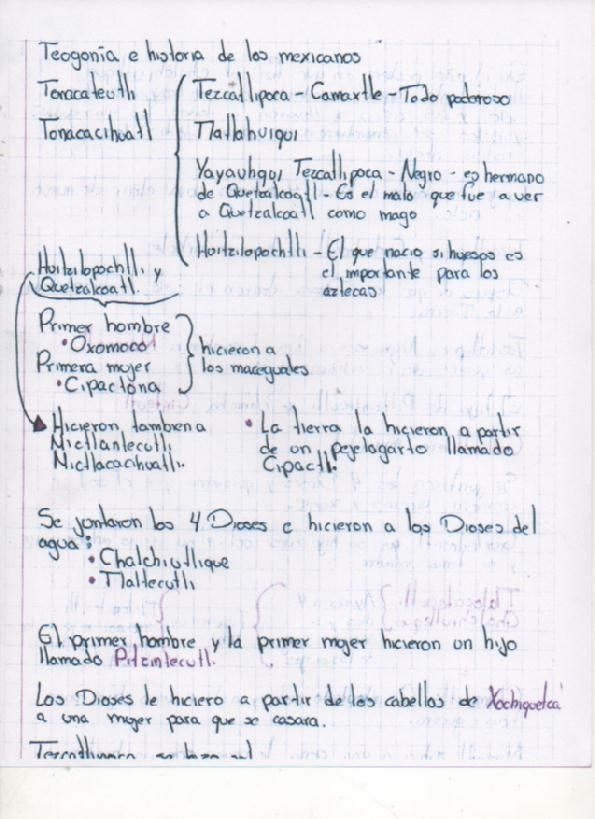 Teogonía e historia de los mexicanos
Tonacateutli
Tonacacihuatl
Tezcatlipoca - Camaxtle - Todo poderoso
Tlatlauiqui
Yayauhqui Tezcatlipoca - Negro - es hermano
de Quetzalcoátl - Es el malo que fue a ver
a Quetzalcoátl como mago
Huitzilopochtli - El que nacio si huesos es
el importante para los
aztecas
Huitzilopochtli y
Quetzalcoatl.
Primer hombre
• Oxomoco
Primera mujer
• Cipactona
hicieron a
los maceguales
Hicieron tambien a
Mictlantecutli
Mictlacacihuatli.
• La tierra la hicieron a partir
de un pejelagarto llamado
Cipactli.
Se juntaron los 4 Dioses e hicieron a los Dioses del
agua:
• Chalchiutlique
• Tlaltecutli
El primer hombre y la primer mujer hicieron un hijo
llamado Pitzintecutli.
Los Dioses le hiciero a partir de los cabellos de Xochiquetzal
a una mujer para que se casara.
Tezcatlipoca se hizo sol